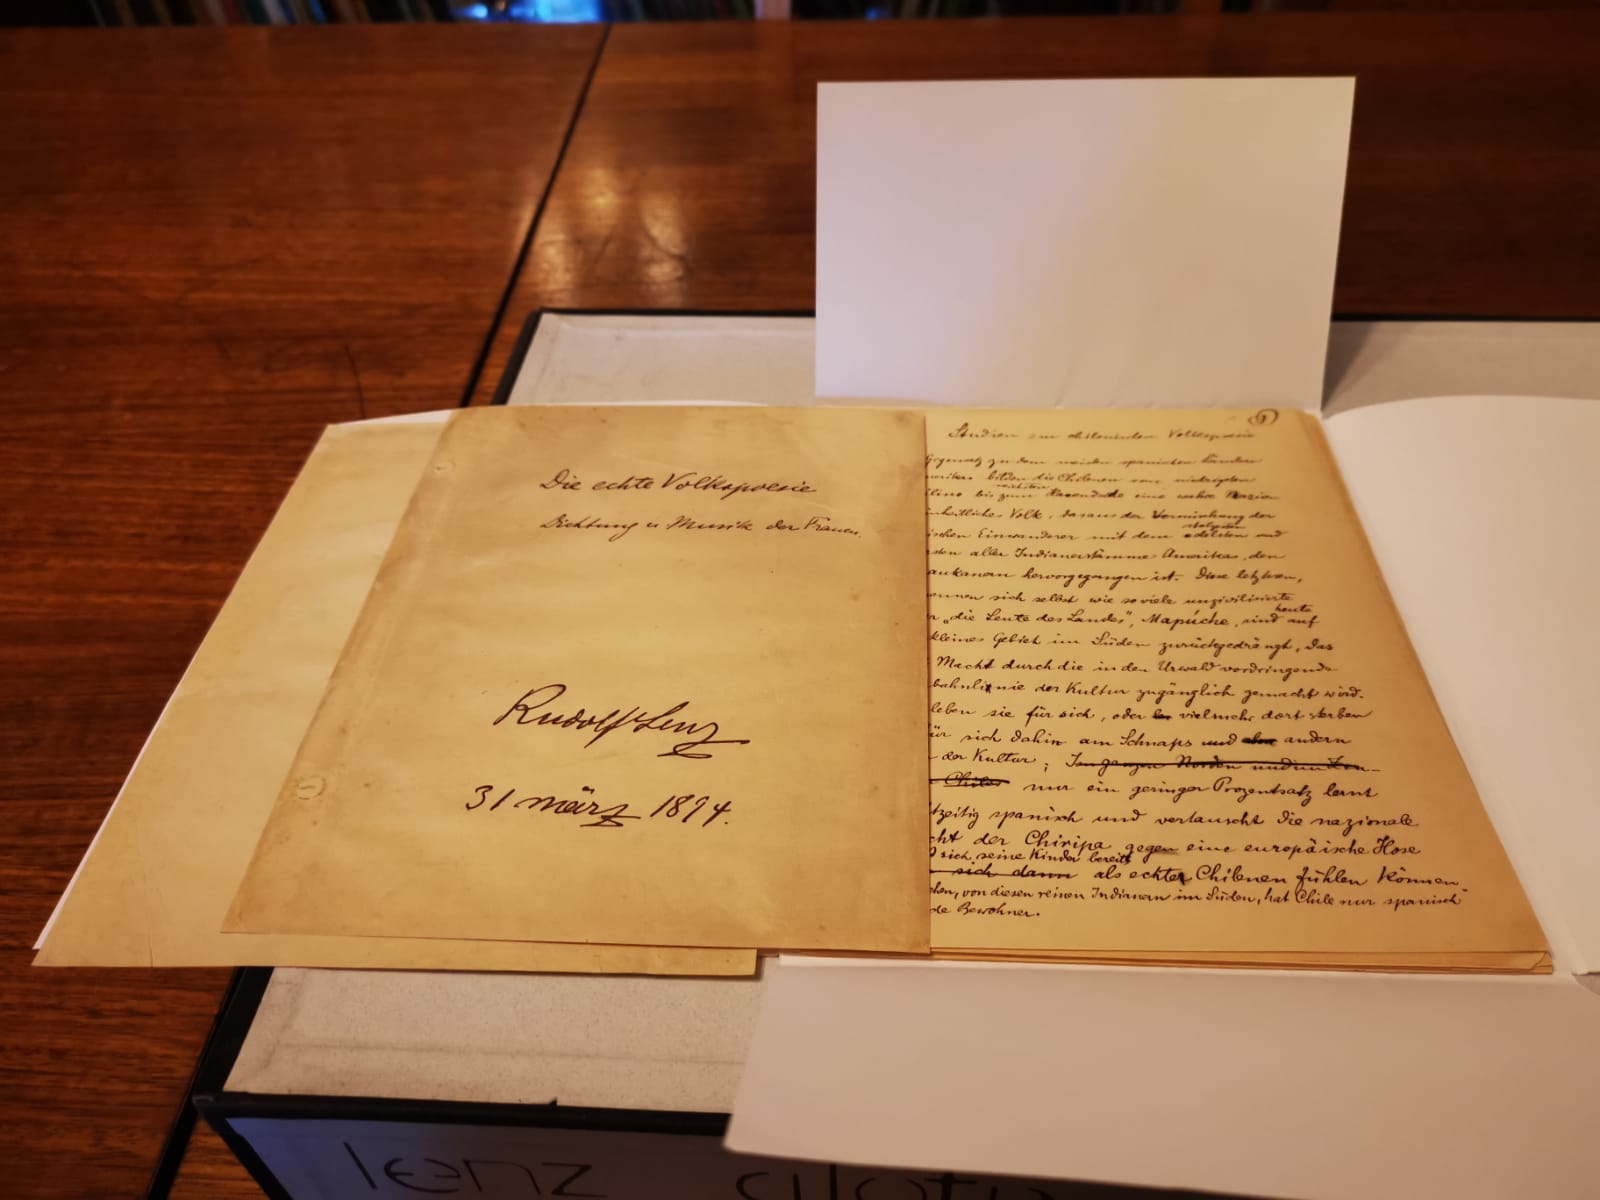 Die echte Volkspoesie
Dichtung u Musik der Frauen.
Rudolf Lenz
31 März 1894.
Studien zur chilenischen Volkspoesie
Gegensatz zu den meisten spanischen Ländern
bilden die Chilenen vom niedrigsten
bis zum reichsten eine wahre Nazion
einheitliches Volk, das aus der Vermischung der
ischen Einwanderer mit dem stolzesten edelsten und
sten aller Indianerstämme Amerikas, den
aukanern hervorgegangen ist. Diese letzteren,
ennen sich selbst wie so viele unzivilisierte
"die Leute des Landes", Mapuche, sind heute auf
kleines Gebiet im Süden zurückgedrängt, das
Macht durch die in den Urwald vordringende
bahnlinie der Kultur zugänglich gemacht wird.
leben sie für sich, oder vielmehr dort sterben
für sich dahin am Schnaps und andern
der Kultur; Im ganzen Norden und im
Chiles nur ein geringer Prozentsatz lernt
tzeitig spanisch und vertauscht die nazionale
cht der Chiripa gegen eine europäische Hose
sich seine Kinder bereits
sich dann als echte Chilenen fühlen können.
hen, von diesen reinen Indianern im Süden, hat Chile nur spanisch
de Bewohner.
lenz